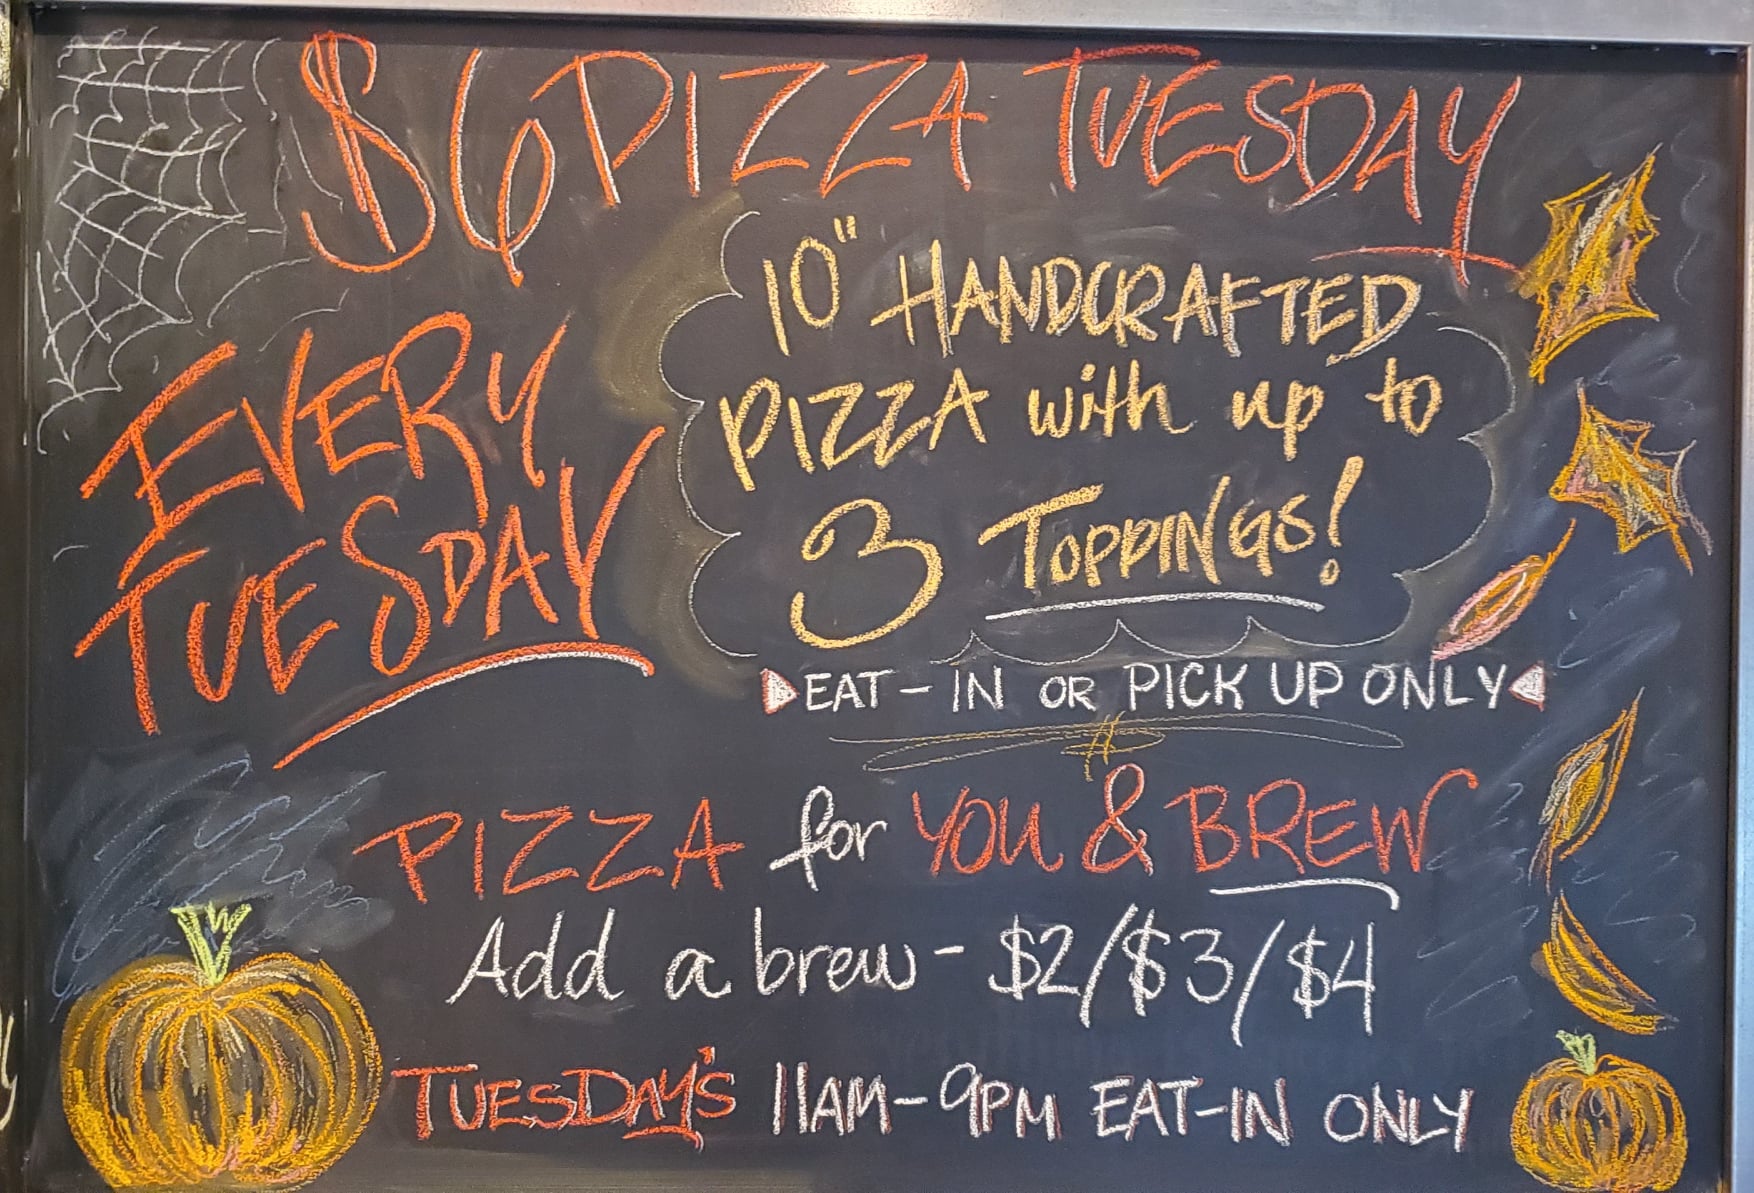 $6 PIZZA TUESDAY
EVERY
TUESDAY
10" HANDCRAFTED
PIZZA with up to
3 TOPPINGS!
EAT-IN OR PICK UP ONLY
PIZZA for YOU & BREW
Add a brew - $2/$3/$4
TUESDAY'S 11AM-9PM EAT-IN ONLY